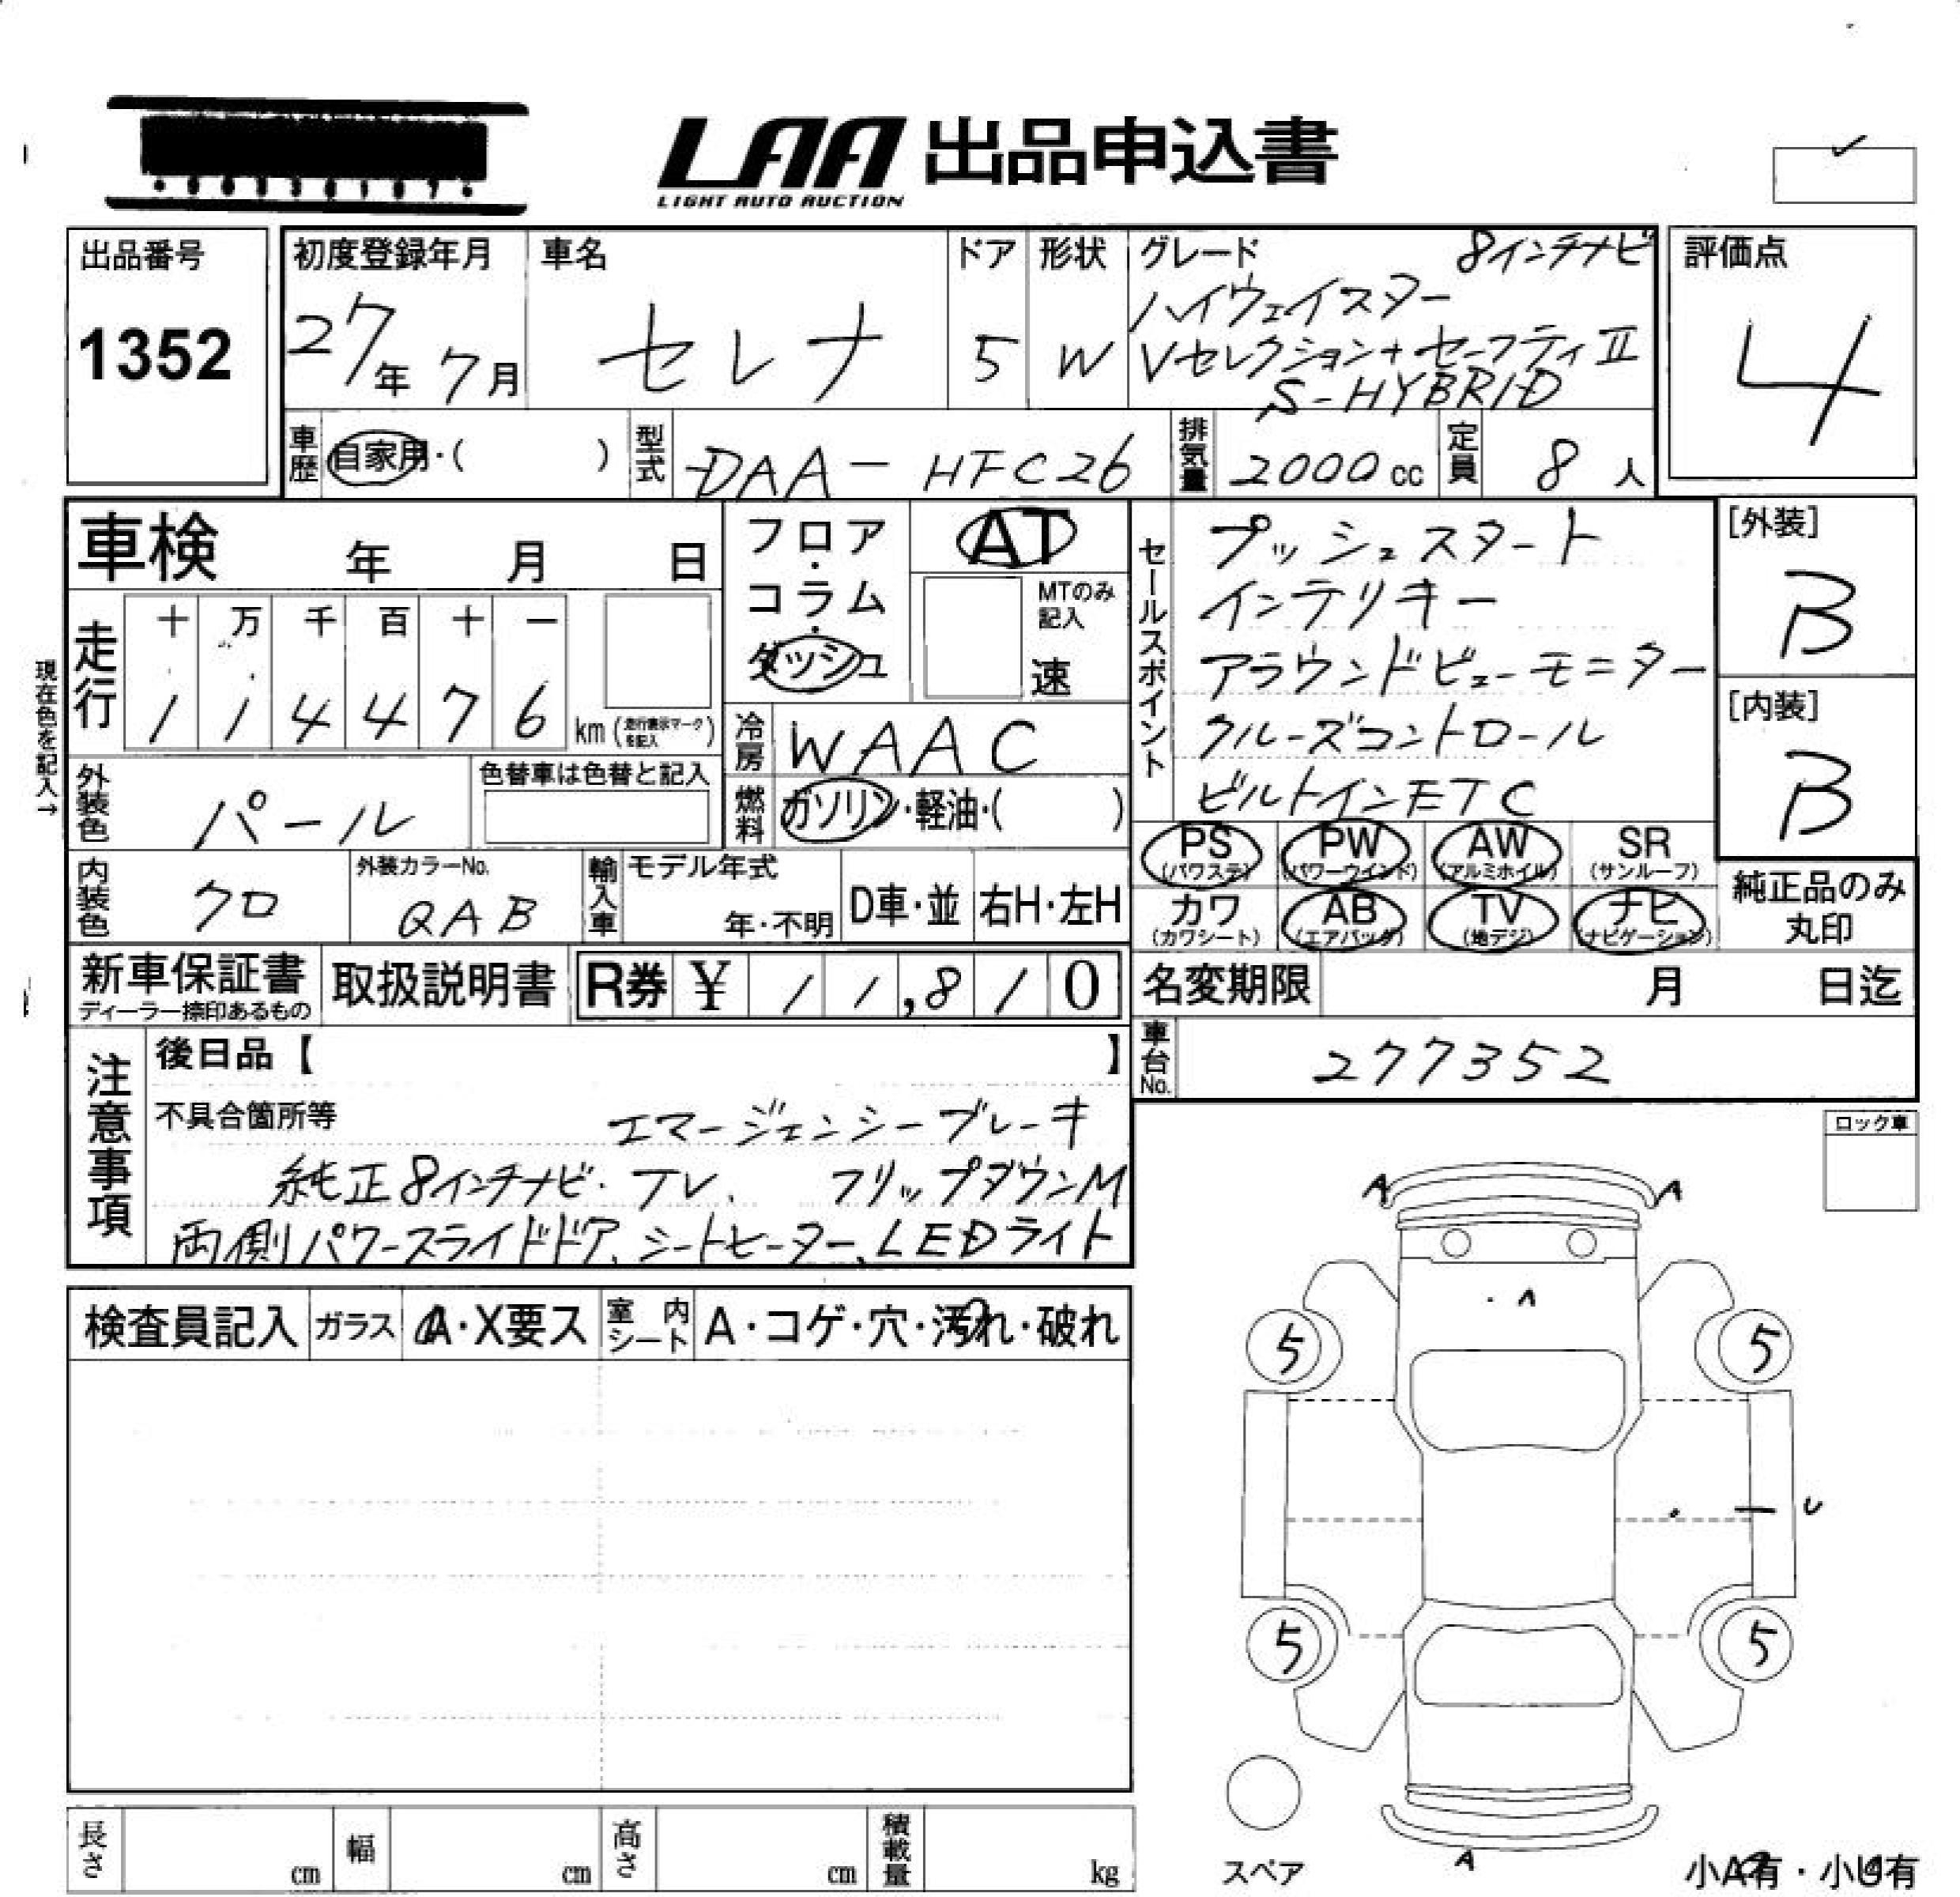 LAA 出品申込書
LIGHT AUTO AUCTION
出品番号
1352
初度登録年月
27年 7月
車名
セレナ
ドア
5
形状
W
グレード
8インチナビ
ハイウェイスター
Vセレクション+セーフティⅡ
S-HYBRID
評価点
4
車歴
自家用・( )
型式
DAA-HFC26
排気量
2000cc
定員
8人
車検 年 月 日
フロア・
コラム・
ダッシュ
AT
MTのみ
記入
速
セールスポイント
プッシュスタート
インテリキー
アラウンドビューモニター
クルーズコントロール
ビルトインETC
[外装]
B
[内装]
B
現在色を記入→
走行
十 万 千 百 十 一
1 1 4 4 7 6
km(走行表示マークを記入)
冷房
WAAC
外装色
パール
色替車は色替と記入
燃料
ガソリン・軽油・( )
PS
(パワステ)
PW
(パワーウインド)
AW
(アルミホイル)
SR
(サンルーフ)
カワ
(カワシート)
AB
(エアバッグ)
TV
(地デジ)
ナビ
(ナビゲーション)
純正品のみ
丸印
内装色
クロ
外装カラーNo.
QAB
輸入車
モデル年式
年・不明
D車・並
右H・左H
新車保証書
ディーラー捺印あるもの
取扱説明書
R券 ¥ 11,810
名変期限 月 日迄
車台No.
277352
注意事項
後日品【 】
不具合箇所等
エマージェンシーブレーキ
純正8インチナビ・TV、 フリップダウンM
両側パワースライドドア、シートヒーター、LEDライト
ロック車
A A
A
5 5
5 5
A
スペア
小A有・小U有
検査員記入
ガラス
A・X要ス
室内シート
A・コゲ・穴・汚れ・破れ
長さ cm
幅 cm
高さ cm
積載量 kg